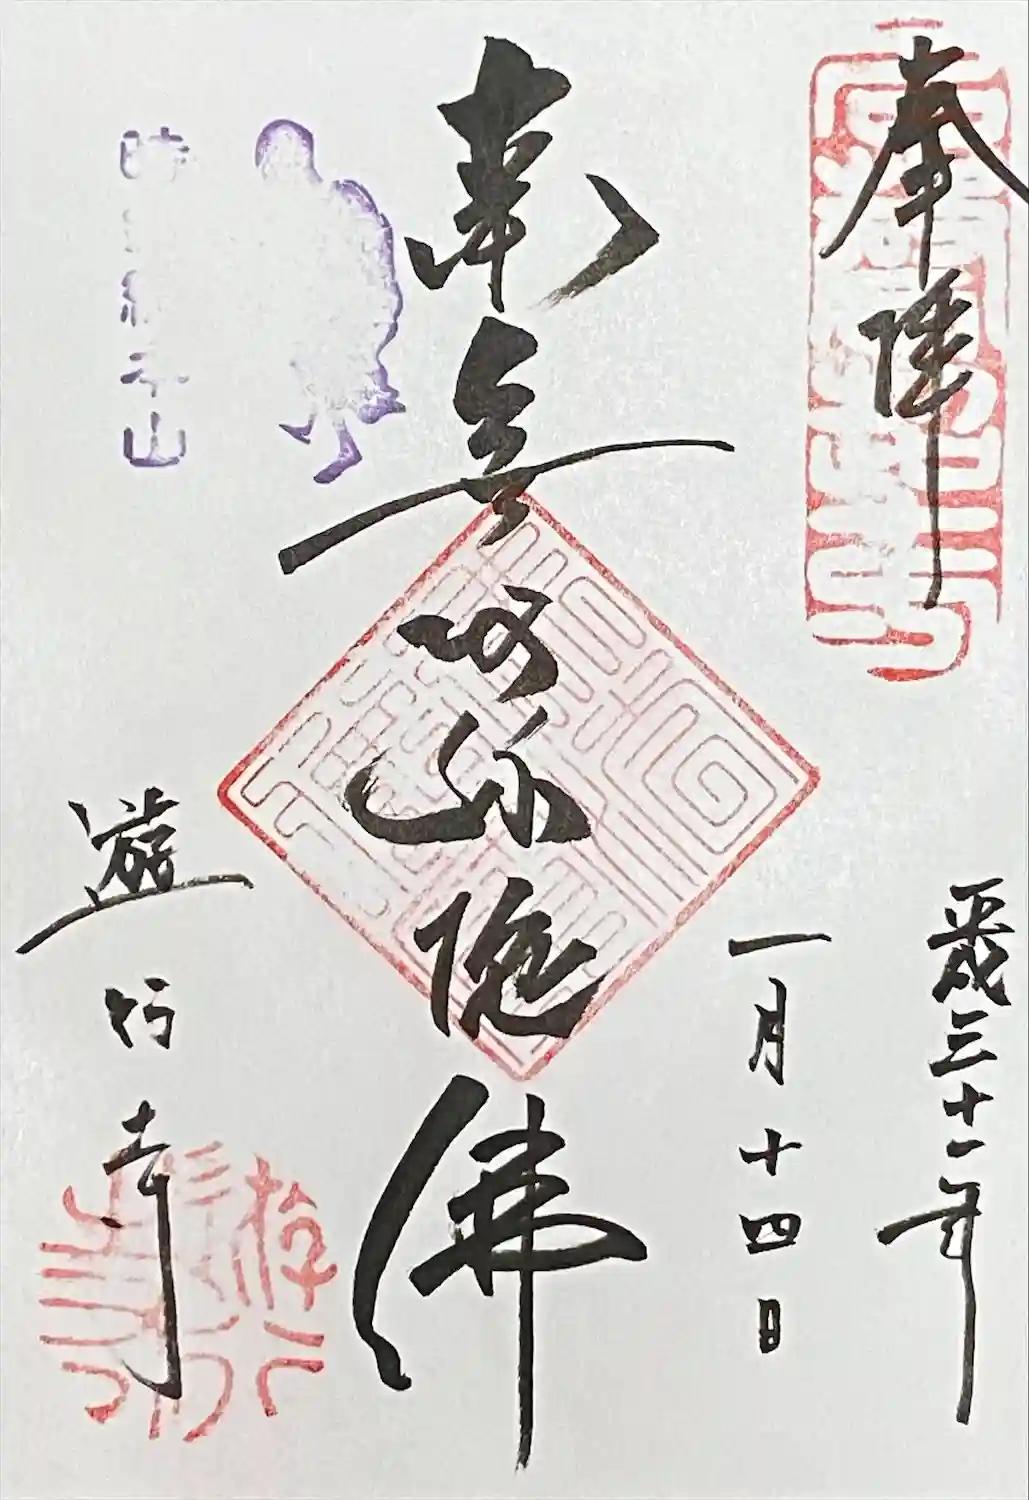 奉拝
平成三十一年
一月十四日
南無阿弥陀佛
時宗総本山
遊行寺